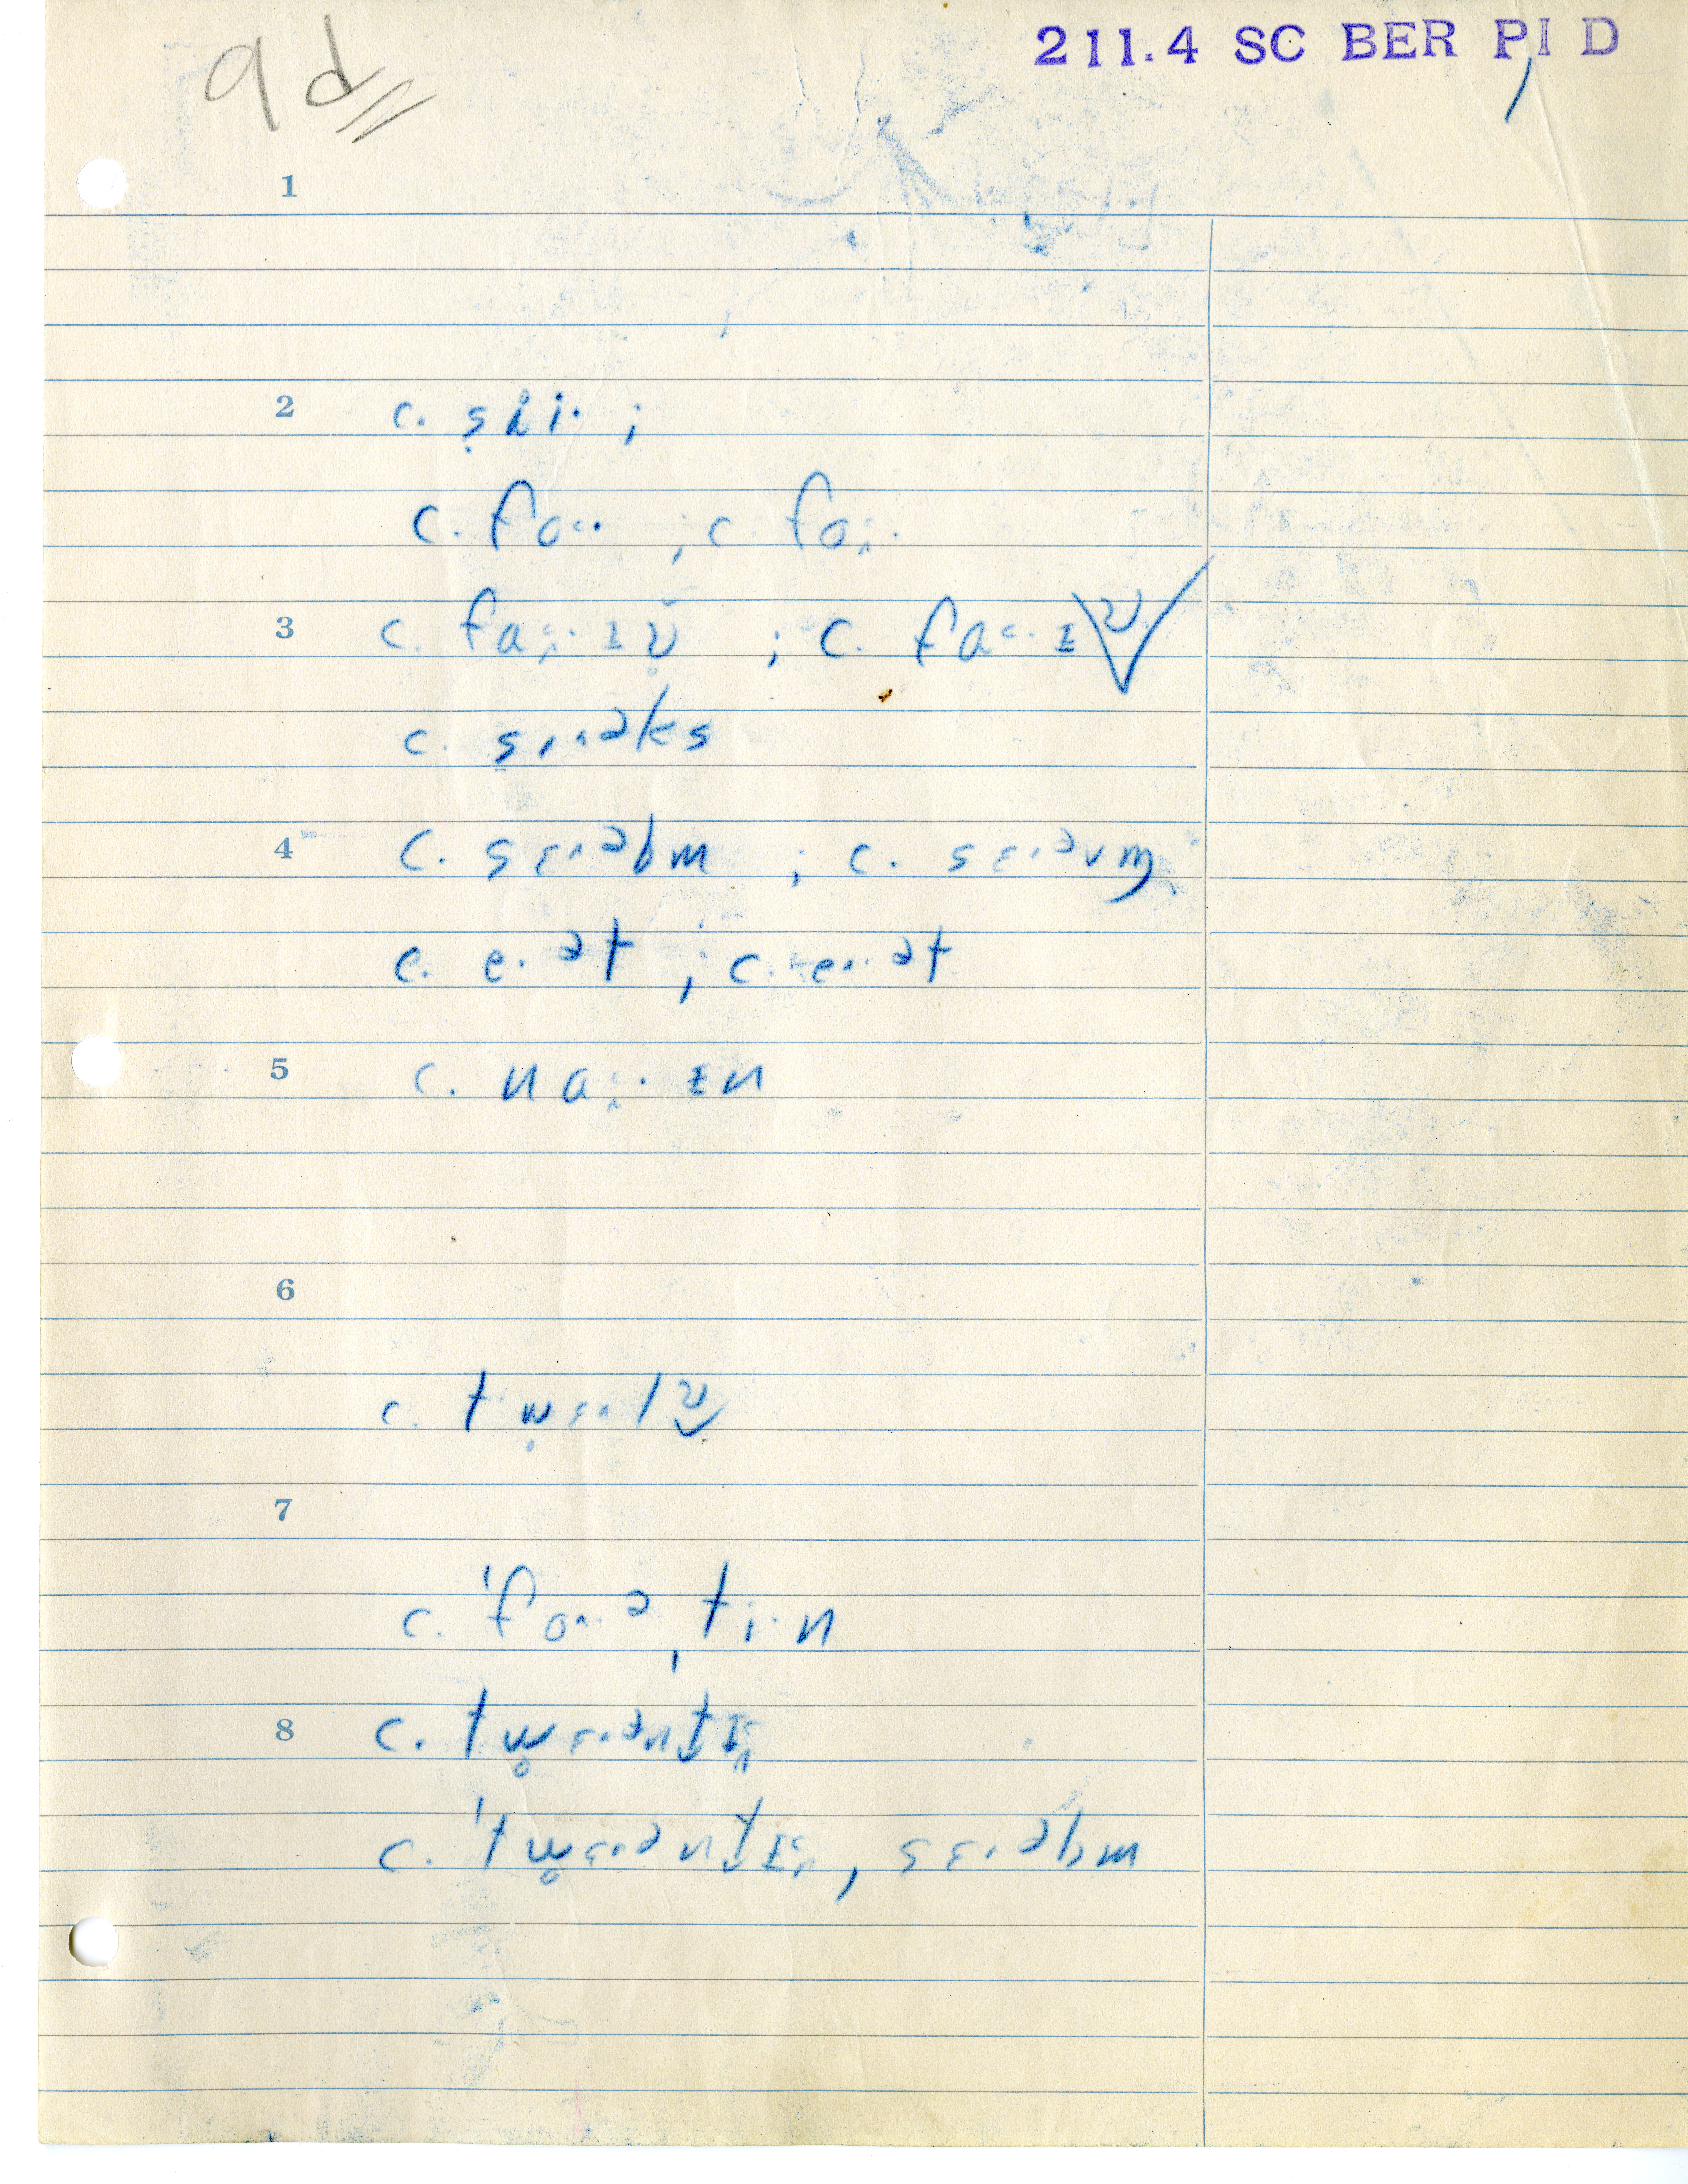 9d
211.4 SC BER P, I D
1
2 c. ṣɹ̥i· ;
c. fo˂· ; c. fo
3 c. fa ɪv̥ ; c. fa˂· ɪv
c. sɪ˄əks
4 c. sɛ˄əbm ; c. sɛ˄əvm̩
c. e·ət ; c. e˄·ət
5 c. na · ɪn
6
c. tw̥ɛ˄lv
7
c. ˈfo˄·əˌti·n
8 c. tw̥ɛ˄əntɪ
c. ˈtw̥ɛ˄əntɪ , sɛ˄əbm